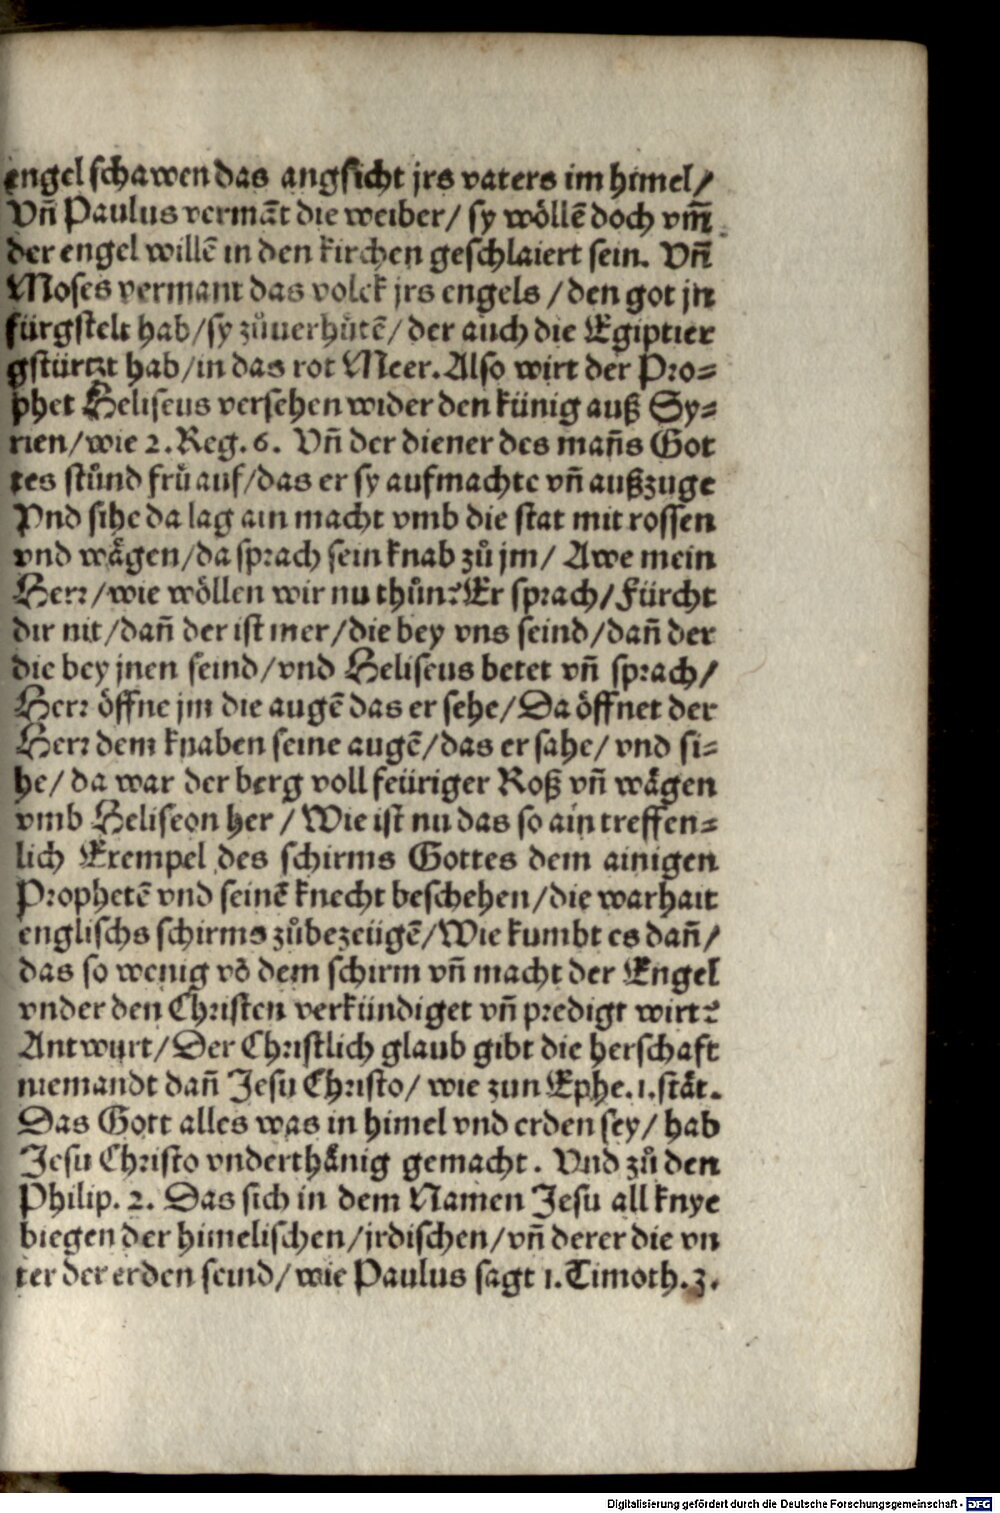 engel schawen das angsicht jrs vaters im himel/
Vñ Paulus vermāt die weiber/ sy wöllē doch vm̄
der engel willē in den kirchen geschlaiert sein. Vñ
Moses vermant das volck jrs engels /den got jn
fürgstelt hab/sy zůuerhůtē/ der auch die Egiptier
gstürtzt hab/in das rot Meer. Also wirt der Pro⸗
phet Heliseus versehen wider den künig auß Sy⸗
rien/wie 2. Reg. 6. Vñ der diener des mañs Got
tes stůnd frů auf/das er sy aufmachte vñ außzuge
Vnd sihe da lag ain macht vmb die stat mit rossen
vnd wågen/da sprach sein knab zů jm/ Awe mein
Herr/wie wöllen wir nu thůn? Er sprach/Fürcht
dir nit/dañ der ist mer/die bey vns seind/dañ der
die bey jnen seind/vnd Heliseus betet vñ sprach/
Herr öffne jm die augē das er sehe/Da öffnet der
Herr dem knaben seine augē/das er sahe/ vnd si⸗
he/ da war der berg voll feüriger Roß vñ wågen
vmb Heliseon her / Wie ist nu das so ain treffen⸗
lich Exempel des schirms Gottes dem ainigen
Prophetē vnd seinē knecht beschehen/die warhait
englischs schirms zůbezeügē/Wie kumbt es dañ/
das so wenig vō dem schirm vñ macht der Engel
vnder den Christen verkündiget vñ predigt wirt?
Antwurt/Der Christlich glaub gibt die herschaft
niemandt dañ Jesu Christo/ wie zun Ephe. 1. ståt.
Das Gott alles was in himel vnd erden sey/ hab
Jesu Christo vnderthånig gemacht. Vnd zů den
Philip. 2. Das sich in dem Namen Jesu all knye
biegen der himelischen/jrdischen/vñ derer die vn
ter der erden seind/wie Paulus sagt 1. Timoth. 3.
Digitalisierung gefördert durch die Deutsche Forschungsgemeinschaft - DFG